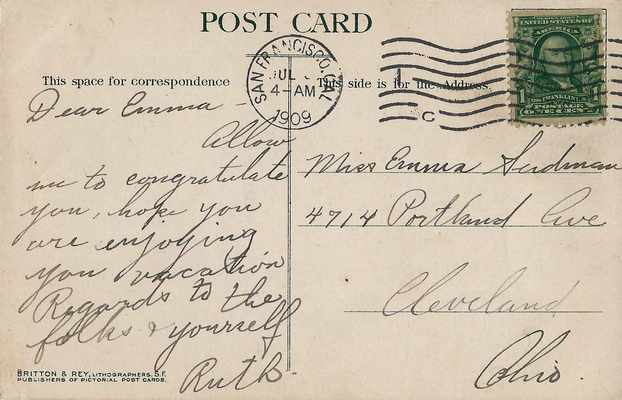 POST CARD
SAN FRANCISCO, CAL
JUL
4-AM
1909
UNITED STATES OF
AMERICA
1 1
FRANKLIN
POSTAGE
ONE CENT
1
C
This space for correspondence
This side is for the Address.
Dear Emma -
Allow
me to congratulate
you, hope you
are enjoying
you vacation
Regards to the
folks & yourself
Ruth
Miss Emma
4714 Portland Ave
Cleveland
Ohio.
BRITTON & REY, LITHOGRAPHERS, S.F.
PUBLISHERS OF PICTORIAL POST CARDS.